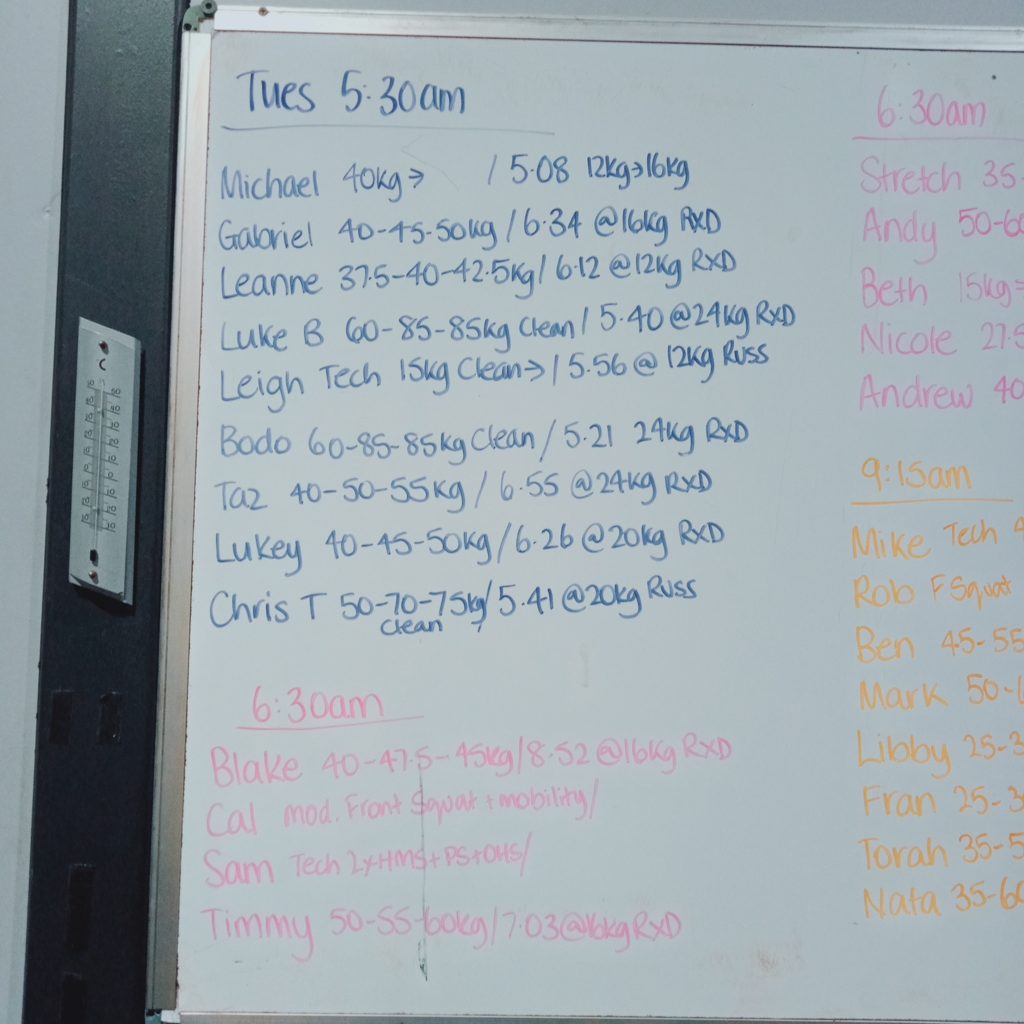 Tues 5:30am
Michael 40kg→ / 5.08 12kg→16kg
Gabriel 40-45-50kg / 6.34 @16kg RXD
Leanne 37.5-40-42.5kg / 6.12 @12kg RXD
Luke B 60-85-85kg Clean / 5.40 @24kg RXD
Leigh Tech 15kg Clean→ / 5.56 @ 12kg Russ
Bodo 60-85-85kg Clean / 5.21 24kg RXD
Taz 40-50-55kg / 6.55 @24kg RXD
Lukey 40-45-50kg / 6.26 @20kg RXD
Chris T 50-70-75kg / 5.41 @20kg Russ
Clean
6:30am
Blake 40-47.5-45kg / 8.52 @16kg RXD
Cal mod. Front Squat + mobility /
Sam Tech 2x HMS + PS + OHS /
Timmy 50-55-60kg / 7.03 @16kg RXD
6:30am
Stretch 35-
Andy 50-60
Beth 15kg
Nicole 27.5
Andrew 40
9:15am
Mike Tech
Rob F Squat
Ben 45-55
Mark 50-
Libby 25-3
Fran 25-3
Torah 35-5
Nata 35-60